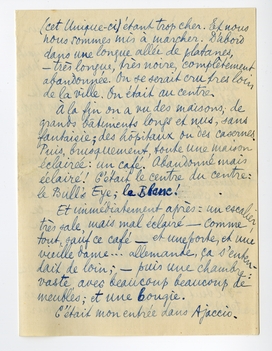 (cet Unique-ci) étant trop cher. Et nous
nous sommes mis à marcher. D'abord
dans une longue allée de platanes,
— très longue, très noire, complètement
abandonnée. On se serait cru fort loin
de la ville. On était au centre.
À la fin on a vu des maisons, de
grands bâtiments longs et nus, sans
fantaisie; des hôpitaux ou des casernes.
Puis, brusquement, toute une maison
éclairée: un café. Abandonné mais
éclairé! C'était le centre du centre:
le Bull's Eye; le Blanc!
Et immédiatement après: un escalier
très sale, mais mal éclairé — comme
tout, sauf ce café — et une porte, et une
vieille dame... allemande, ça s'enten-
dait de loin; — puis une chambre
vaste, avec beaucoup beaucoup de
meubles; et une bougie.
C'était mon entrée dans Ajaccio.